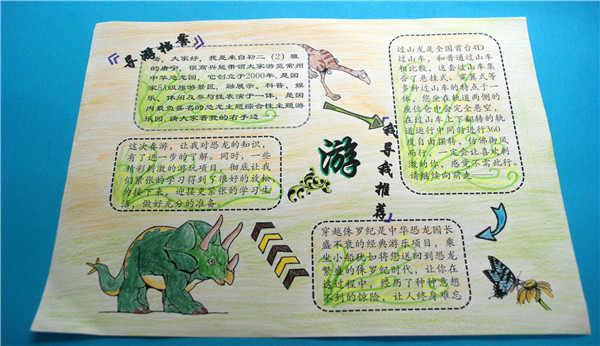 《导游档案》
嗨，大家好，我是来自初二（2）班
的唐宁，很高兴能带领大家游览常州
中华恐龙园，它创立于2000年，是国
家5A级旅游景区，融展示、科普、娱
乐、休闲及参与性表演于一体，是国
内最负盛名的恐龙主题综合性主题游
乐园，请大家看我的右手边
过山龙是全国首台4D
过山车，和普通过山车
相比较，这套过山车集
合了悬挂式、翼翼式等
多种过山车的特点于一
体，您坐在轨道两侧的
座位仓中会完全悬空，
在过山车上下翻转的轨
道运行中同时进行360
度自由旋转，仿佛御风
而行，一定会让喜欢刺
激的你，感受不虚此行。
请继续向前走
游
《我导我推荐》
这次春游，让我对恐龙的知识，
有了进一步的了解。同时，一些
精彩刺激的游玩项目，彻底让我
们紧张的学习得到了很好的放松
为接下来，迎接更紧张的学习生
活，做好充分的准备。
穿越侏罗纪是中华恐龙园长
盛不衰的经典游乐项目，乘
坐小船犹如将您送回到恐龙
繁盛的侏罗纪时代，让你在
这过程中，经历了种种意想
不到的惊险，让人终身难忘